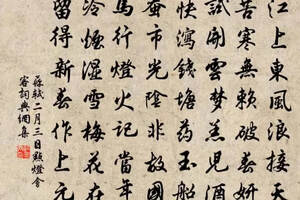 江上東風浪接天
苦寒無賴破春妍
試開雲夢羔兒酒
快瀉錢塘藥玉船
蠶市光陰非故國
馬行燈火記當年
冷煙濕雪梅花在
留得新春作上元
蘇軾二月三日點燈會
客詞典網集